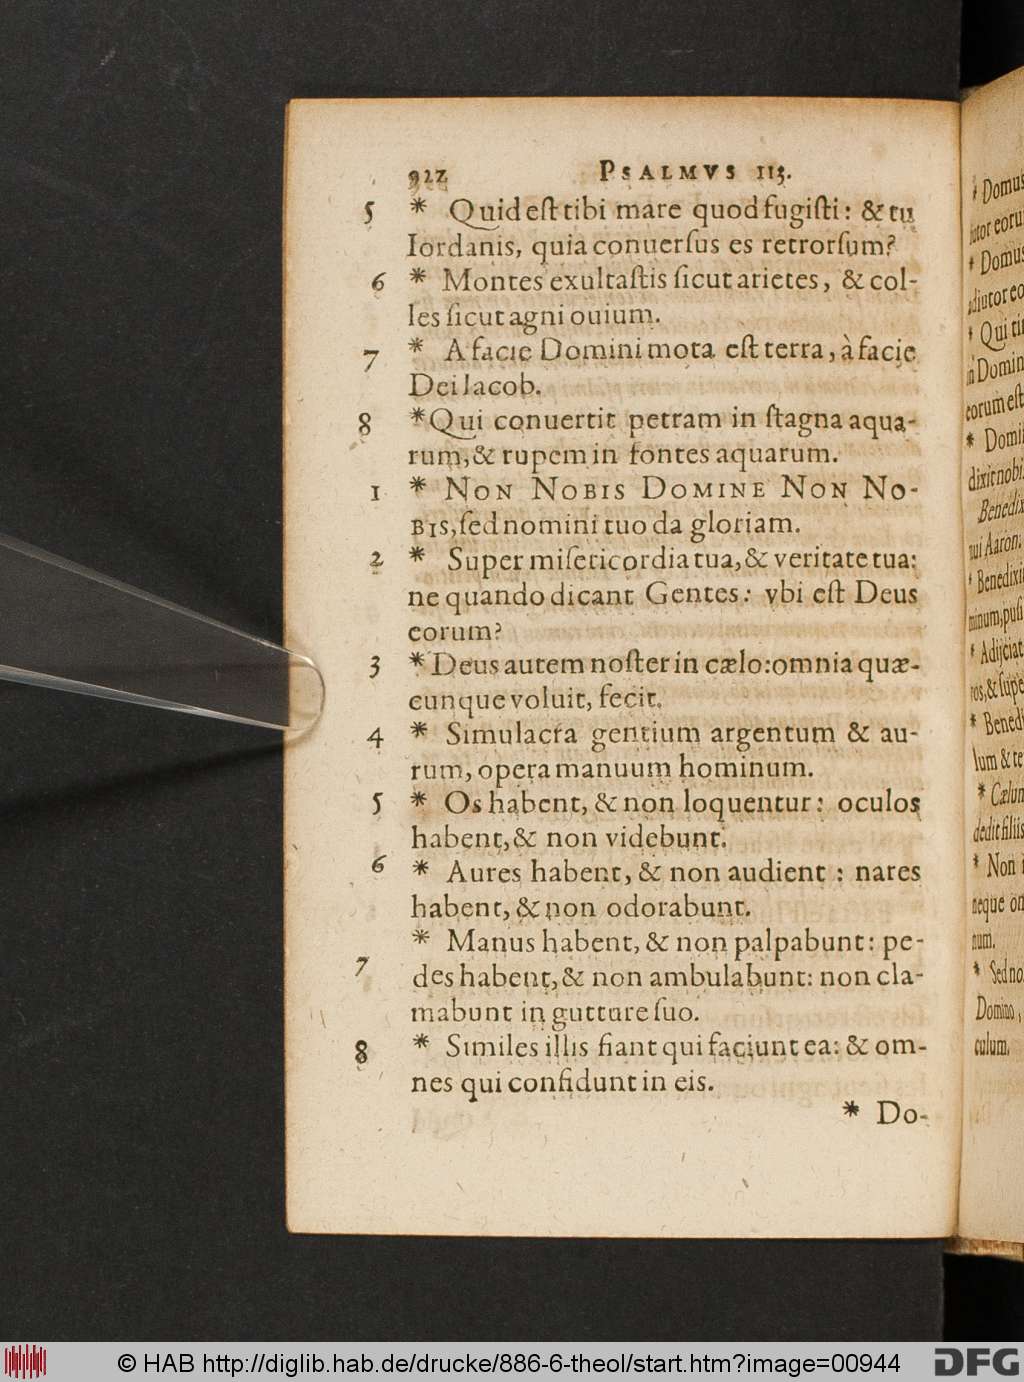 922 PSALMVS 113.
5 * Quid eſt tibi mare quod fugiſti: & tu
Iordanis, quia conuerſus es retrorſum?
6 * Montes exultaſtis ſicut arietes, & col-
les ſicut agni ouium.
7 * A facie Domini mota eſt terra, à facie
Dei Iacob.
8 *Qui conuertit petram in ſtagna aqua-
rum, & rupem in fontes aquarum.
1 * NON NOBIS DOMINE NON NO-
BIS, ſed nomini tuo da gloriam.
2 * Super miſericordia tua, & veritate tua:
ne quando dicant Gentes: vbi eſt Deus
eorum?
3 * Deus autem noſter in cælo: omnia quæ-
cunque voluit, fecit.
4 * Simulacra gentium argentum & au-
rum, opera manuum hominum.
5 * Os habent, & non loquentur: oculos
habent, & non videbunt.
6 * Aures habent, & non audient : nares
habent, & non odorabunt.
7 * Manus habent, & non palpabunt: pe-
des habent, & non ambulabunt: non cla-
mabunt in gutture ſuo.
8 * Similes illis fiant qui faciunt ea: & om-
nes qui confidunt in eis.
* Do-
* Domus
* Domus
* Qui ti
Domin
eorum eſt
* Domi
dixit nobi
Benedix
Aaron.
* Benedixi
* Adijciat
ros, & ſupe
* Bened
lum & te
* Cælum
dedit filiis
* Non
neque om
num.
* Sed no
Domino,
culum.
© HAB http://diglib.hab.de/drucke/886-6-theol/start.htm?image=00944
DFG